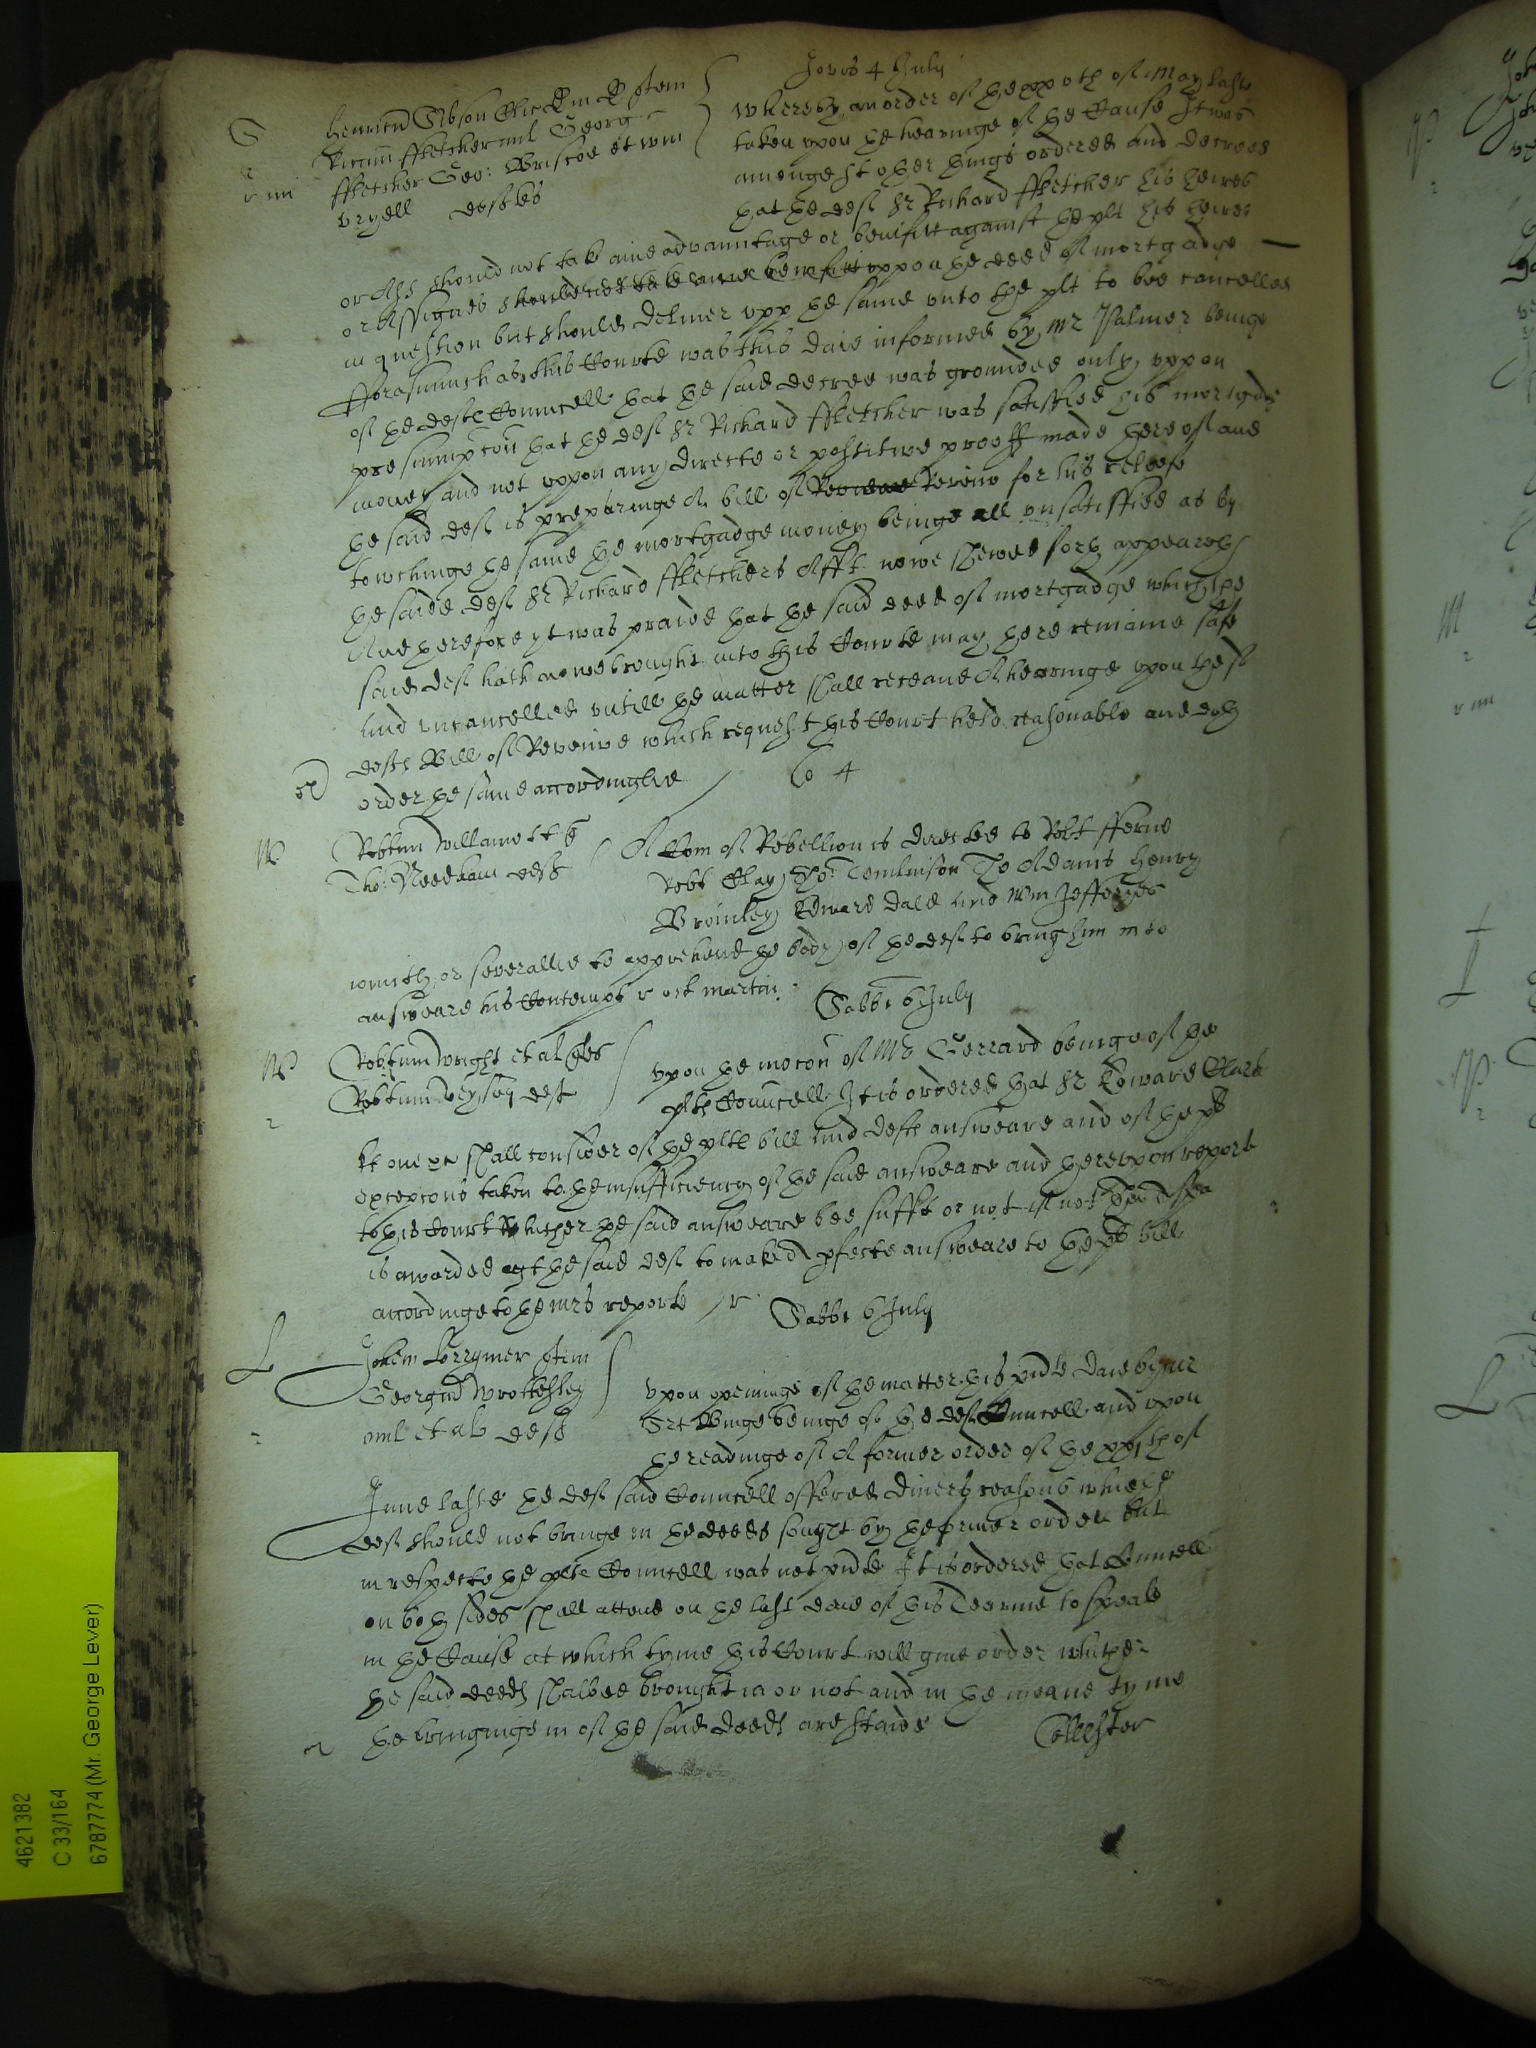 Jovis 4 July
G
Henricu Gibson
Ricum ffletcher mil Georg
ffletcher Geo: Briscoe et um
Uryell deftes
Whereby an order of the xxx oth of May laste
taken upon the hearinge of the Cause It was
amongest other things ordered and decreed
that the deft Sr Richard ffletcher his heires
or Ass should not take anie advauntage or benifitt against the plt his heires
or Assignes should not take anie benefitt uppon the deed of mortgadge
in question but should deliver upp the same unto the plt to bee cancelled
fforasmuch as this Courte was this daie informed by Mr Palmer beinge
of the defts Councell that the said decree was grounded only uppon
presumpcon that the deft Sr Richard ffletcher was satisfied his mortgadge
money and not uppon any directe or positive prooff made thereof and
the said deft is prepairinge A bill of Reveiw for his releefe
towchinge the same the mortgadge money beinge all unsatisfied as by
the saide deft Sr Richard ffletchers Afft nowe shewed forth appeareth
And therefore yt was praied that the said deed of mortgadge which the
said deft hath nowe brought into this Courte may there remaine safe
and uncancelled untill the matter shall receave A hearinge upon the sd
defts Bill of Reveiwe which request this Court held reasonable and doth
order the same accordinglie
Eo 4
W
Robtum Willamott q
Tho: Needham deft
A Com of Rebellion is directed to Robt fferne
Robt Clay Tho: Tomlinson To Adams Henry
Bromley Edward Dale and Wm Jefferyes
iointly or severallie to apprehend the body of the deft to bring him in to
answeare his Contempt r oct martin
Sabbi 6 July
W
Robtum Wright et al ques
Robtum Veysey deft
Upon the mocon of Mr Gerrard beinge of the
plts Councell It is ordered that Sr Edward Clark
kt one &c shall consider of the plts bill and defts answeare and of the pts
excepcons taken to the insufficiency of the said answeare and thereupon report
to this Court whether the said answeare bee suffit or not if not the
is awarded agt the said deft to make A pfecte answeare to the pts bill
accordinge to the mrs reporte r
Sabbi 6 July
L
Johem Lorrymer quem
Georgiu Wrottesley
mil et als deft
Upon openinge of the matter this pnte daie by mr
Srt Winge beinge of the deft Councell and upon
the readinge of A former order of the xxjth of
June laste the deft said Councell offered divers reasons whie the
deft should not bringe in the deeds sought by the former order but
in respecte the plts Councell was not pnte It is ordered that Councell
on both sides shall attend on the last daie of this Tearme to speake
in the Cause at which tyme this Court will give order whither
the said deeds shalbee brought in or not and in the meane tyme
the bringinge in of the said deeds are staied
4621382
C 33/164
6787774 (Mr. George Lever)